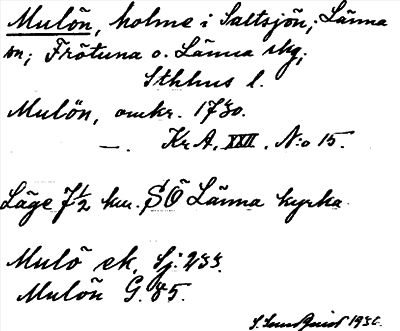 Mulön, holme i Saltsjön, Länna
sn; Frötuna o. Länna skg;
Sthlms l.
Mulön, omkr. 1730.
—. Kr A. XXII. N:o 15.
Läge 7½ km. SÖ Länna kyrka.
Mulö ek. Sj: 233.
Mulön G. 85.
1930.